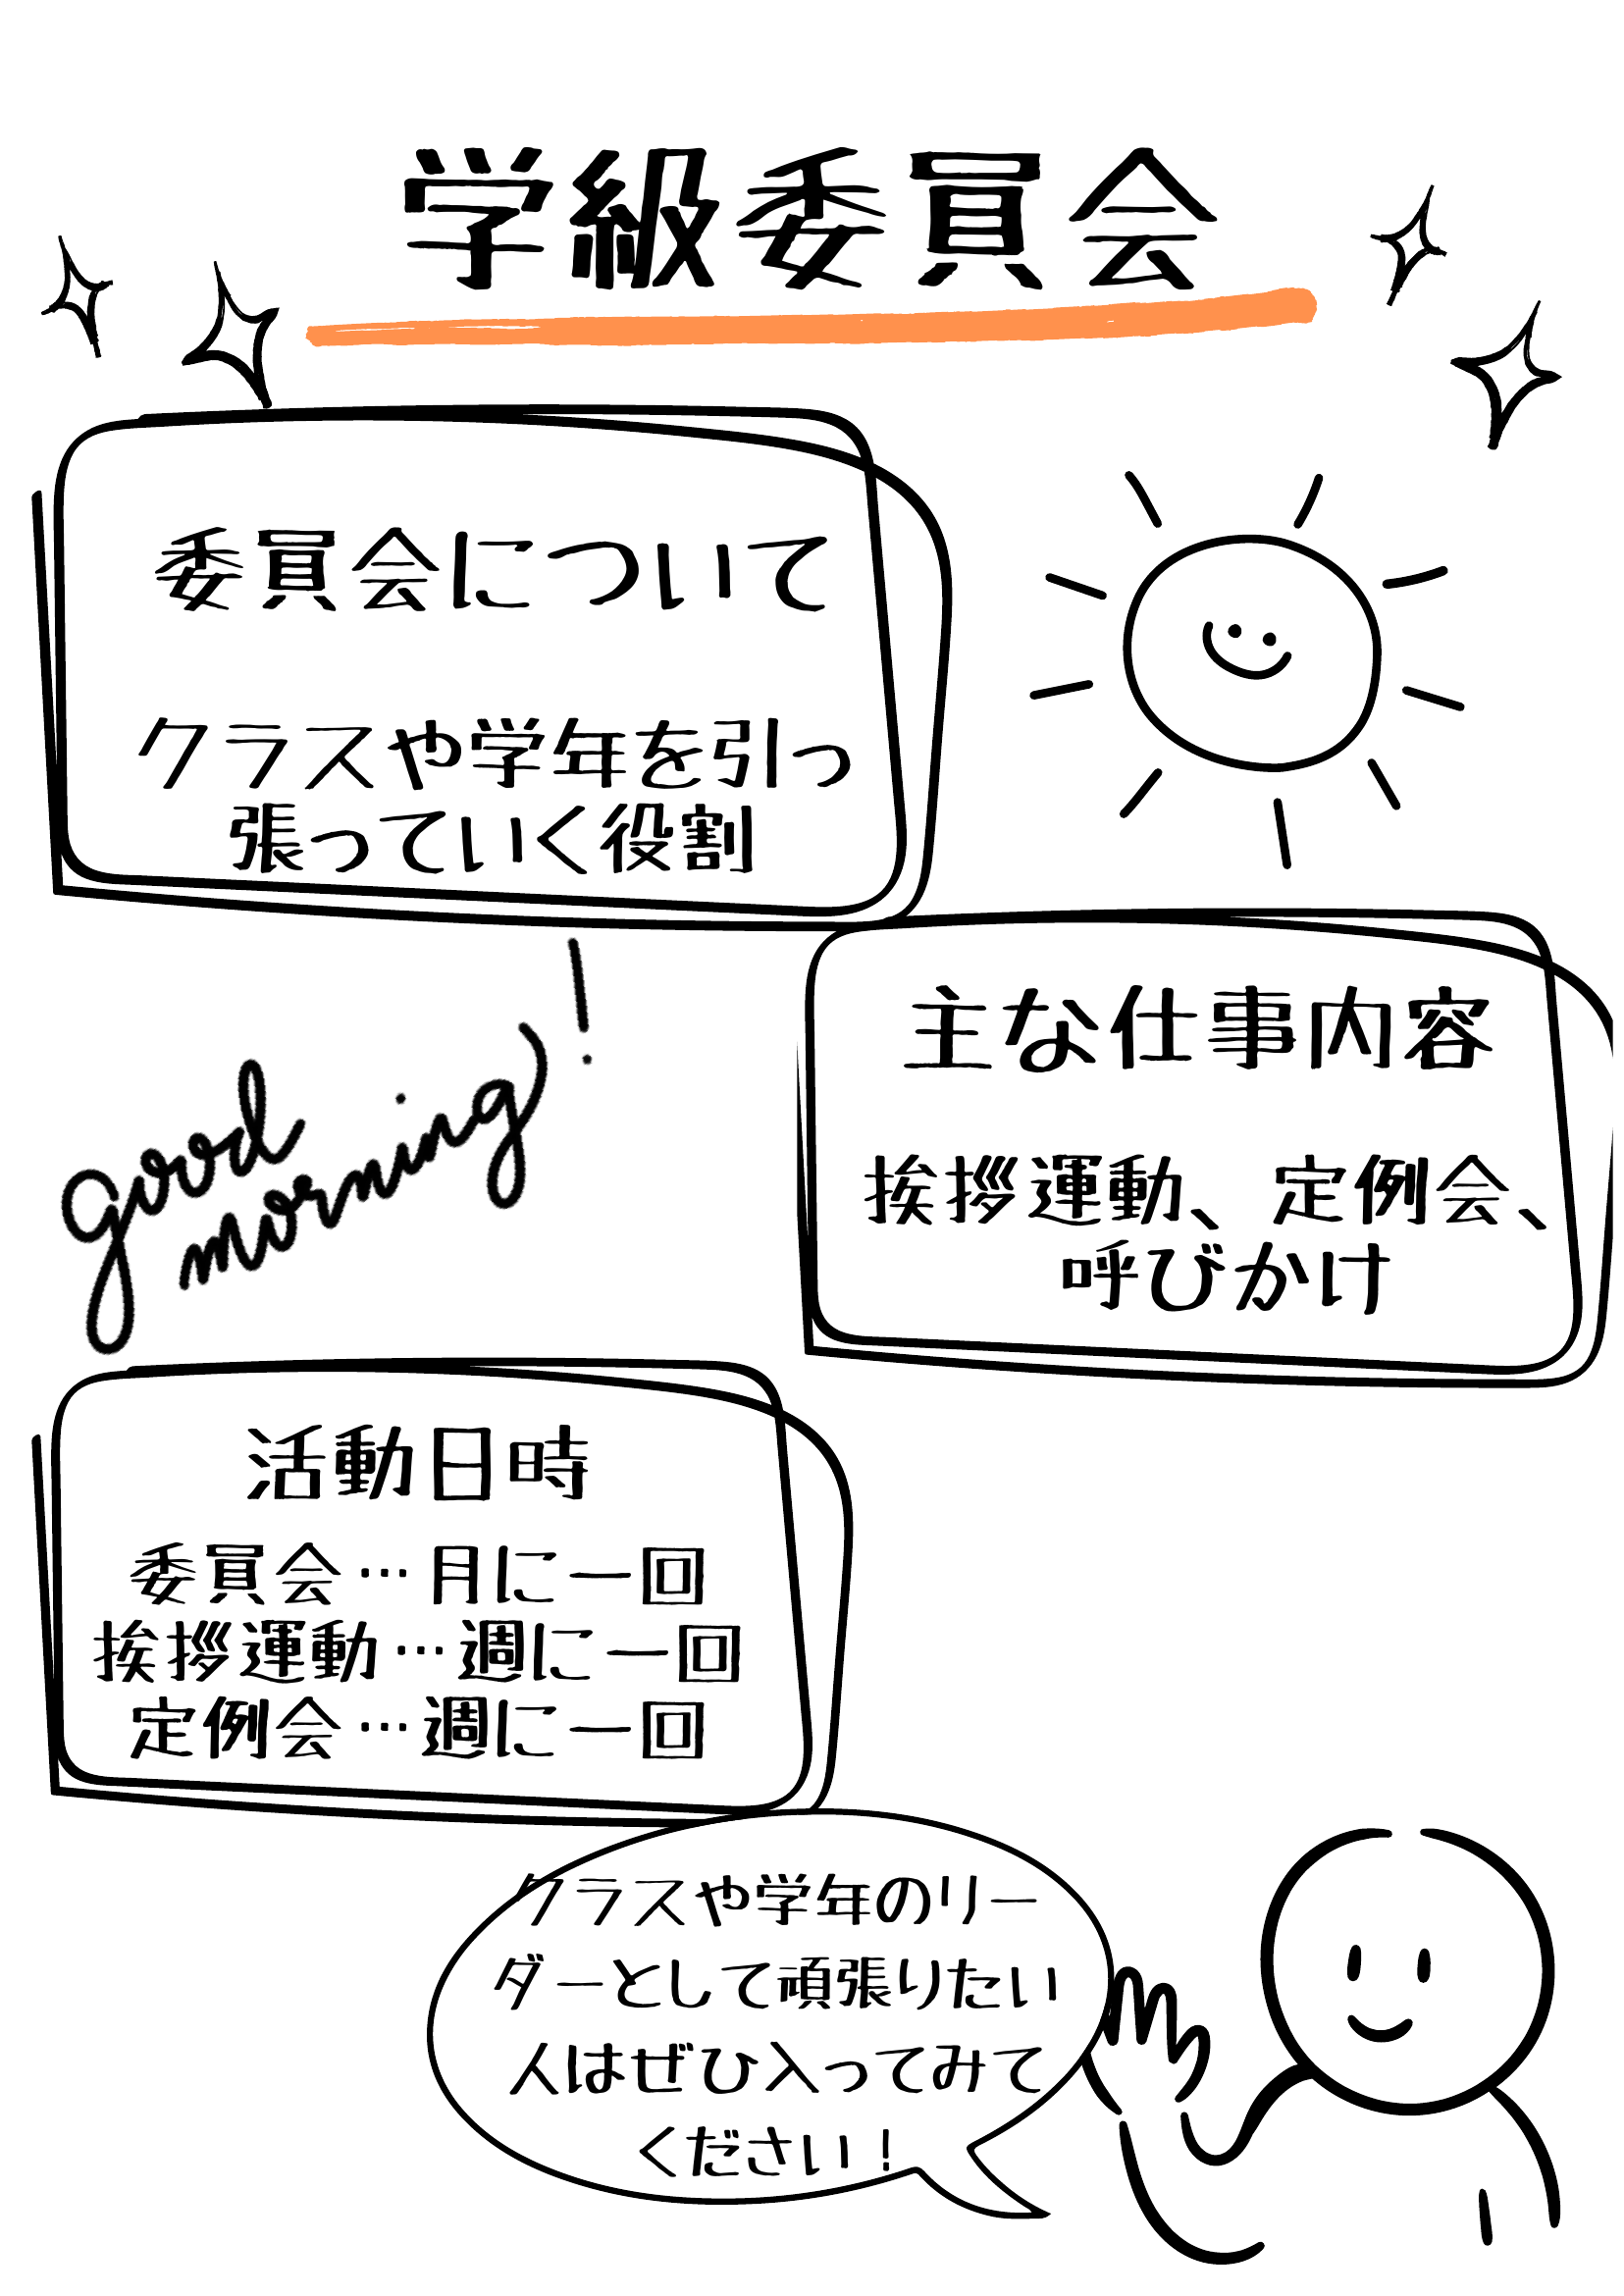 学級委員会
委員会について
クラスや学年を引っ
張っていく役割
good
morning!
主な仕事内容
挨拶運動、定例会、
呼びかけ
活動日時
委員会…月に一回
挨拶運動…週に一回
定例会…週に一回
クラスや学年のリー
ダーとして頑張りたい
人はぜひ入ってみて
ください！